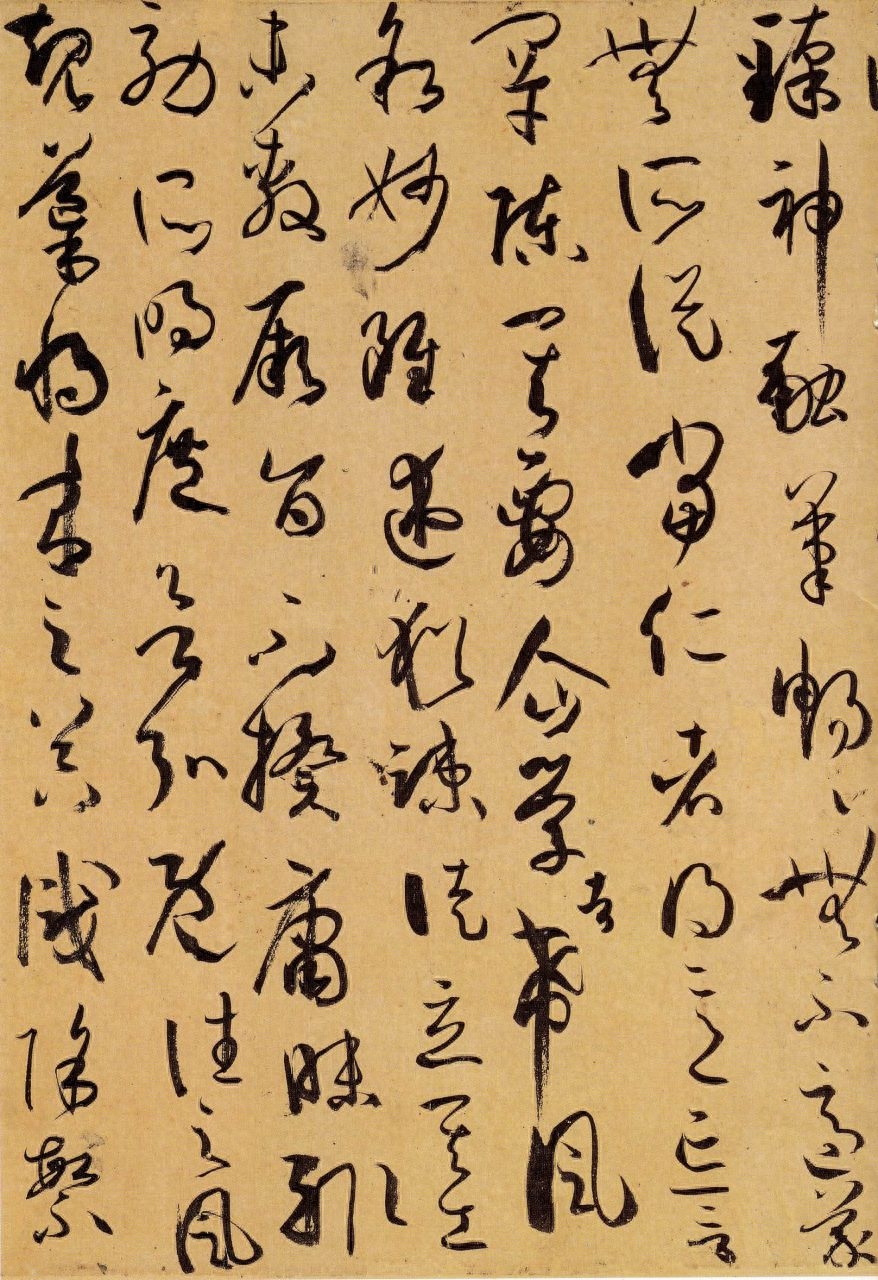 臻神融筆暢〻無不適蒙
無所從當仁者得意忘言
罕陳其要企學者希風
敘妙雖述猶疎徒立其工
未敷厥旨不揆庸昧輒
效所明庶欲弘既往之風
規導將來之器識除繁